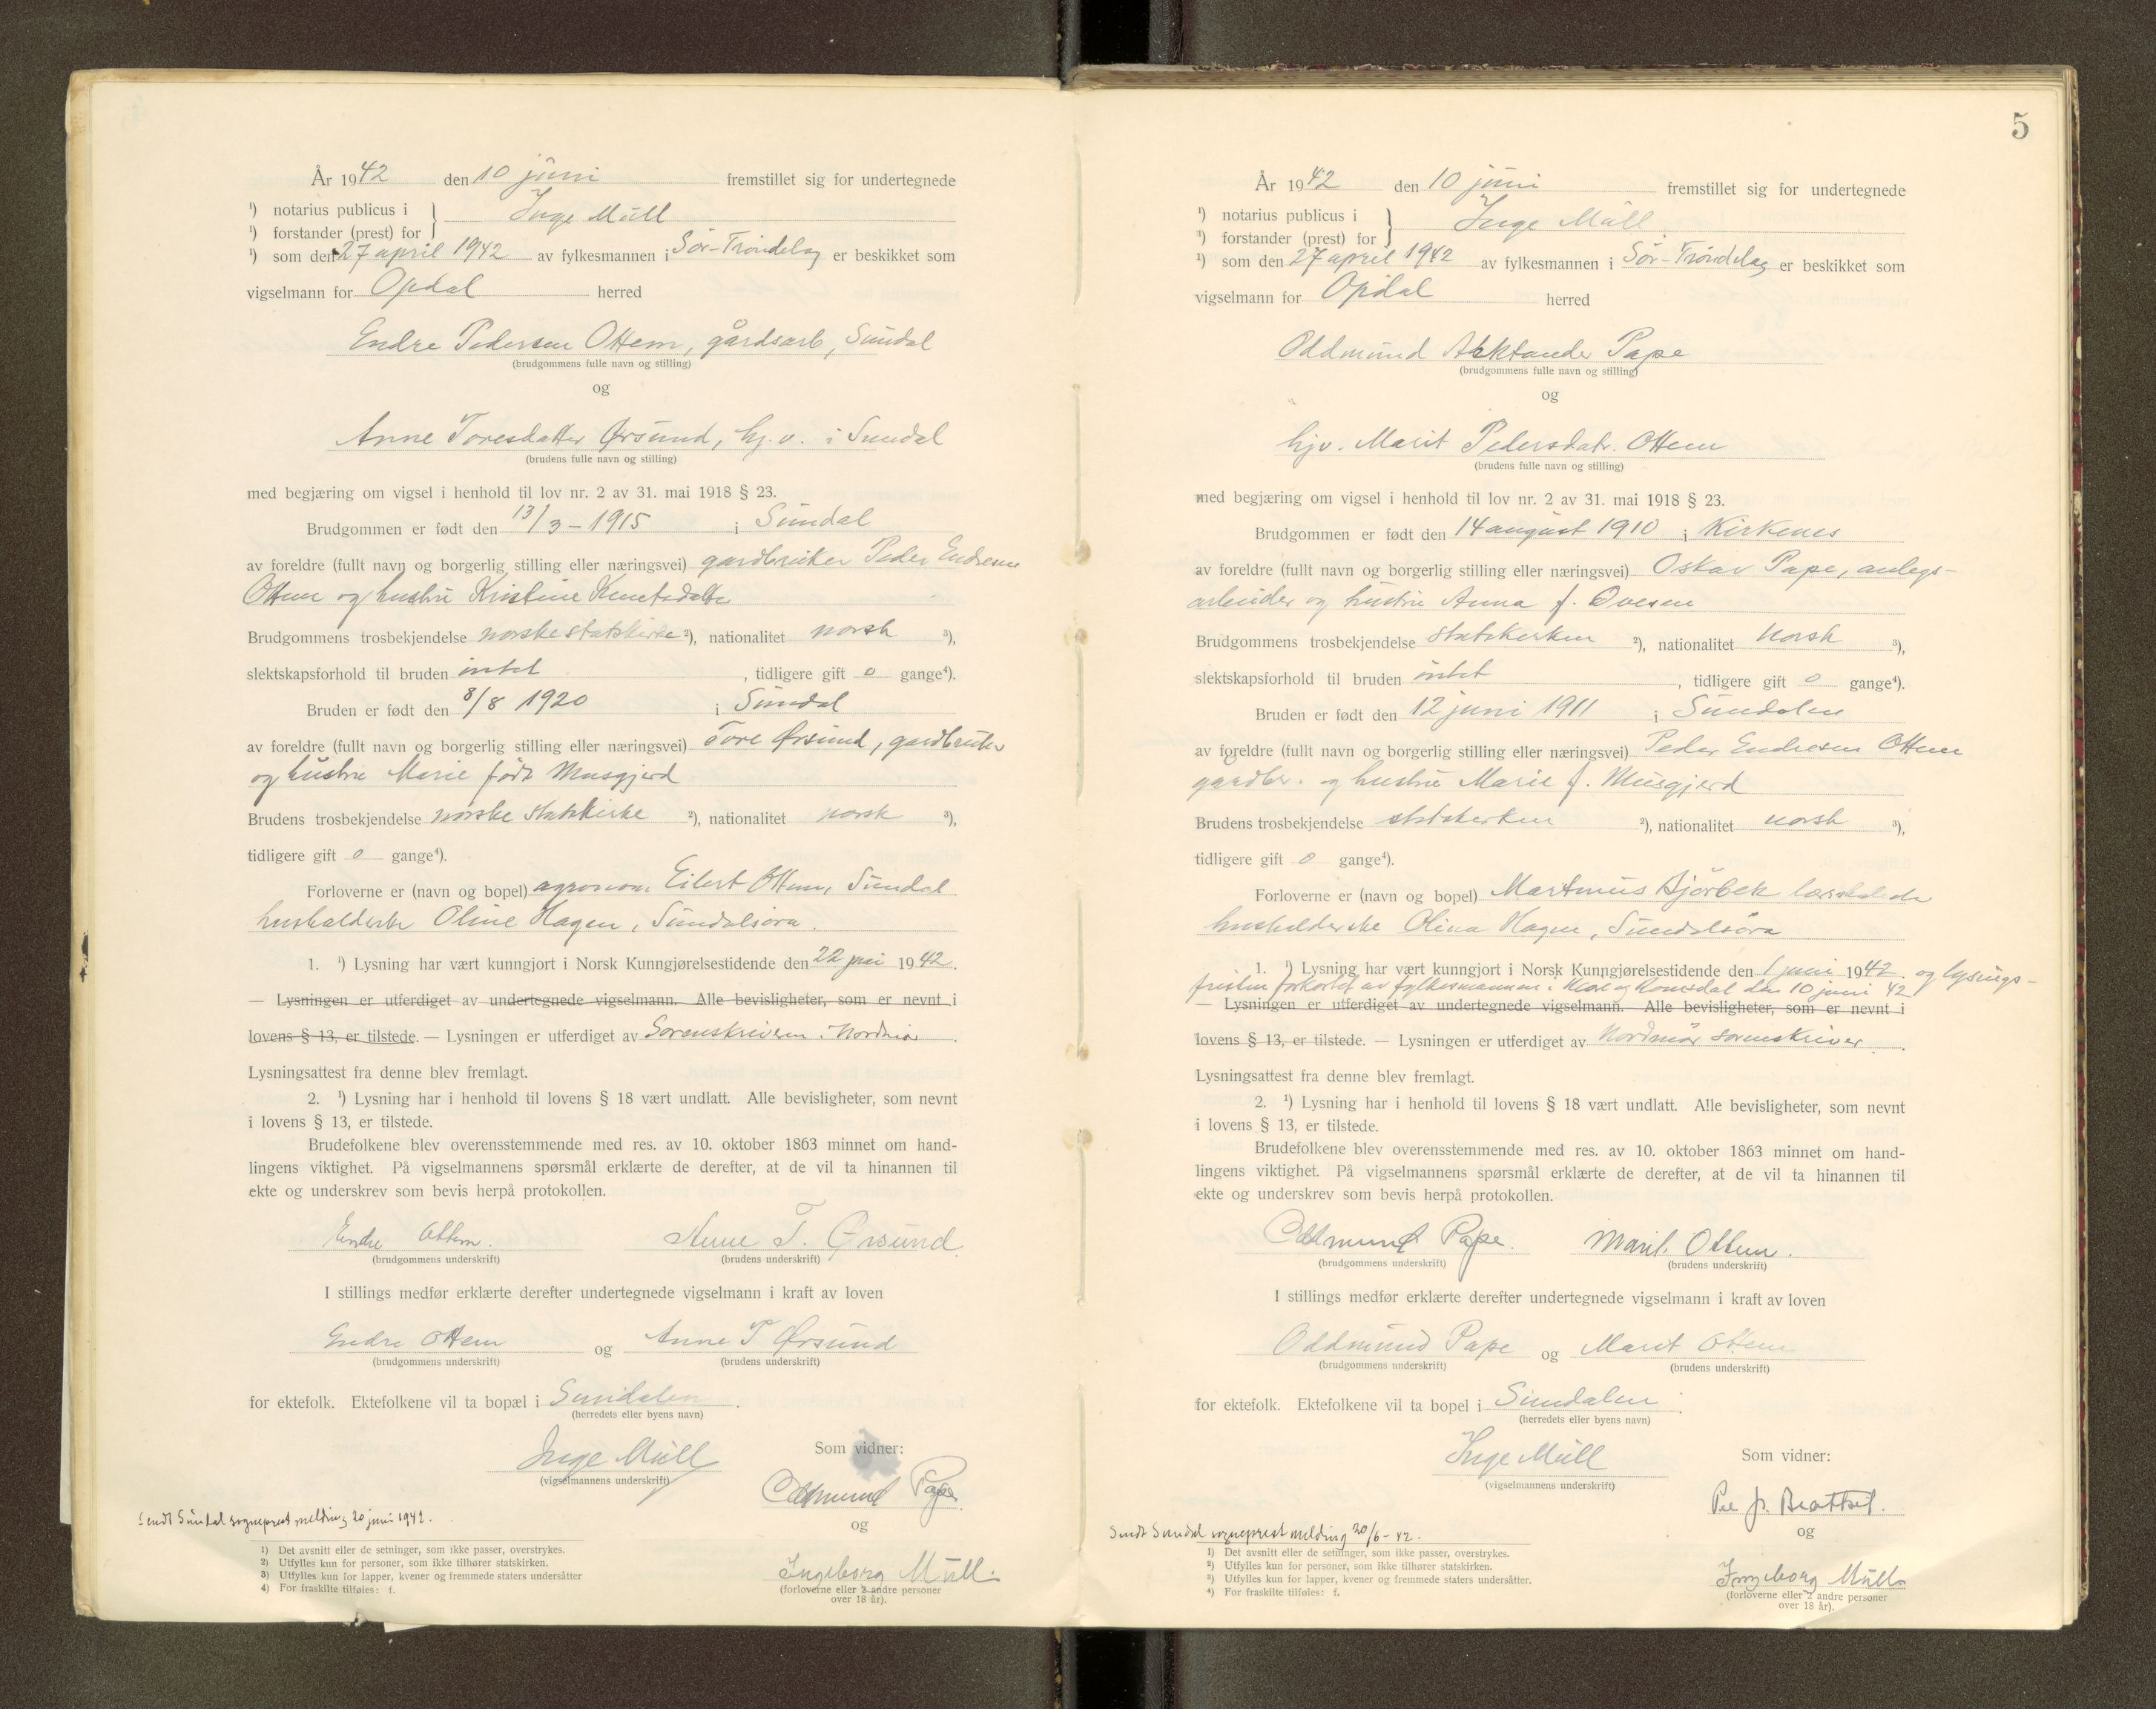 År 1942 den 10 juni fremstillet sig for undertegnede
¹) notarius publicus i
¹) forstander (prest) for } Inge Müll
¹) som den 27 april 1942 av fylkesmannen i Sør-Trøndelag er beskikket som
vigselmann for Opdal herred
Endre Pedersen Ottem, gårdsarb, Sundal
(brudgommens fulle navn og stilling)
og
Anne Toresdatter Ørsund, hj. v. i Sundal
(brudens fulle navn og stilling)
med begjæring om vigsel i henhold til lov nr. 2 av 31. mai 1918 § 23.
Brudgommen er født den 13/3 - 1915 i Sundal
av foreldre (fullt navn og borgerlig stilling eller næringsvei) gardbruker Peder Endresen
Ottem og hustru Kristine Knutsdatter
Brudgommens trosbekjendelse norske statskirke ²), nationalitet norsk ³),
slektskapsforhold til bruden intet , tidligere gift 0 gange⁴).
Bruden er født den 8/8 1920 i Sundal
av foreldre (fullt navn og borgerlig stilling eller næringsvei) Tore Ørsund, gardbruker
og hustru Marie født Musgjerd
Brudens trosbekjendelse norske statskirke ²), nationalitet norsk ³),
tidligere gift 0 gange⁴).
Forloverne er (navn og bopel) agronom Eilert Ottem, Sundal
husholderske Oline Hagen, Sundalsøra.
1. ¹) Lysning har vært kunngjort i Norsk Kunngjørelsestidende den 22 mai 1942.
— Lysningen er utferdiget av undertegnede vigselmann. Alle bevisligheter, som er nevnt i
lovens § 13, er tilstede. — Lysningen er utferdiget av Sorenskriveren i Nordmør .
Lysningsattest fra denne blev fremlagt.
2. ¹) Lysning har i henhold til lovens § 18 vært undlatt. Alle bevisligheter, som nevnt
i lovens § 13, er tilstede.
Brudefolkene blev overensstemmende med res. av 10. oktober 1863 minnet om hand-
lingens viktighet. På vigselmannens spørsmål erklærte de derefter, at de vil ta hinannen til
ekte og underskrev som bevis herpå protokollen.
Endre Ottem. Anne T. Ørsund.
(brudgommens underskrift) (brudens underskrift)
I stillings medfør erklærte derefter undertegnede vigselmann i kraft av loven
Endre Ottem og Anne T Ørsund
(brudgommens underskrift) (brudens underskrift)
for ektefolk. Ektefolkene vil ta bopæl i Sundalen .
(herredets eller byens navn)
Inge Müll Som vidner:
(vigselmannens underskrift)
Oddmund Pape
og
Sendt Sundal sogneprest melding 20 juni 1942.
Ingeborg Müll.
(forloverne eller 2 andre personer
over 18 år).
1) Det avsnitt eller de setninger, som ikke passer, overstrykes.
2) Utfylles kun for personer, som ikke tilhører statskirken.
3) Utfylles kun for lapper, kvener og fremmede staters undersåtter
4) For fraskilte tilføies: f.
5
År 1942 den 10 juni fremstillet sig for undertegnede
¹) notarius publicus i
¹) forstander (prest) for } Inge Müll
¹) som den 27 april 1942 av fylkesmannen i Sør-Trøndelag er beskikket som
vigselmann for Opdal herred
Oddmund Pape
(brudgommens fulle navn og stilling)
og
hjv. Marit Pedersdatr. Ottem
(brudens fulle navn og stilling)
med begjæring om vigsel i henhold til lov nr. 2 av 31. mai 1918 § 23.
Brudgommen er født den 14 august 1910 i Kirkenes
av foreldre (fullt navn og borgerlig stilling eller næringsvei) Oskar Pape, anlegs-
arbeider og hustru Anna f. Ovesen
Brudgommens trosbekjendelse statskirken ²), nationalitet norsk ³),
slektskapsforhold til bruden intet , tidligere gift 0 gange⁴).
Bruden er født den 12 juni 1911 i Sundalen
av foreldre (fullt navn og borgerlig stilling eller næringsvei) Peder Endresen Ottem
gardbr. og hustru Marie f. Musgjerd
Brudens trosbekjendelse statskirken ²), nationalitet norsk ³),
tidligere gift 0 gange⁴).
Forloverne er (navn og bopel) Martinus
husholderske Olina Hagen, Sundalsøra
1. ¹) Lysning har vært kunngjort i Norsk Kunngjørelsestidende den 1 juni 1942. og lysings-
fristen forkortet av fylkesmannen i Møre og Romsdal den 10 juni 42
— Lysningen er utferdiget av undertegnede vigselmann. Alle bevisligheter, som er nevnt i
lovens § 13, er tilstede. — Lysningen er utferdiget av Nordmør sorenskriver .
Lysningsattest fra denne blev fremlagt.
2. ¹) Lysning har i henhold til lovens § 18 vært undlatt. Alle bevisligheter, som nevnt
i lovens § 13, er tilstede.
Brudefolkene blev overensstemmende med res. av 10. oktober 1863 minnet om hand-
lingens viktighet. På vigselmannens spørsmål erklærte de derefter, at de vil ta hinannen til
ekte og underskrev som bevis herpå protokollen.
Oddmund Pape. Marit Ottem.
(brudgommens underskrift) (brudens underskrift)
I stillings medfør erklærte derefter undertegnede vigselmann i kraft av loven
Oddmund Pape og Marit Ottem
(brudgommens underskrift) (brudens underskrift)
for ektefolk. Ektefolkene vil ta bopel i Sundalen .
(herredets eller byens navn)
Inge Müll Som vidner:
(vigselmannens underskrift)
og
Sendt Sundal sogneprest melding 20/6 - 42.
Ingeborg Müll
(forloverne eller 2 andre personer
over 18 år).
1) Det avsnitt eller de setninger, som ikke passer, overstrykes.
2) Utfylles kun for personer, som ikke tilhører statskirken.
3) Utfylles kun for lapper, kvener og fremmede staters undersåtter.
4) For fraskilte tilføies: f.